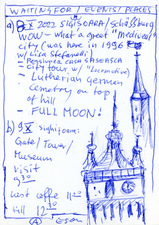 WAITING FOR / EVENTS / PLACES
a) 8 X 2002 SIGISOARA / Schässburg
WOW - what a great "Medieval"
city (was here in 1996
w/ Lisa Stefanelli
- Pensiunea CASA SASEASCA
- City tour w/ "Locomotive"
- Lutherian German
cemetry on top
of hill
FULL MOON!
b) 9 X Sighisoara:
Gate / Tower /
Museum
visit
9 30
next coffee 11
till 12 30